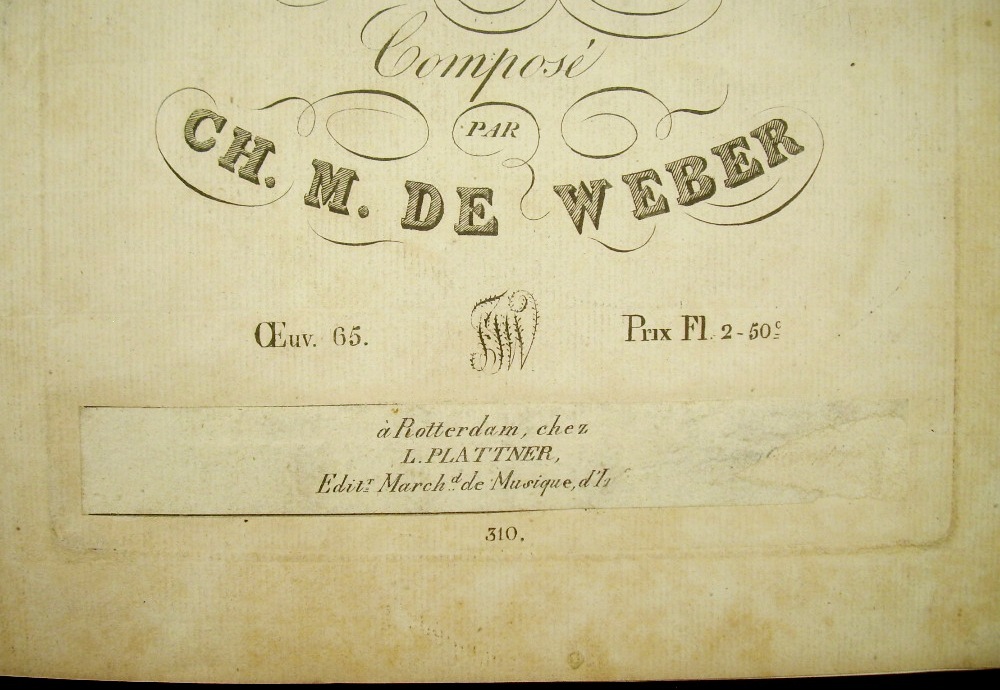 Composé
PAR
CH. M. DE WEBER
Œuv. 65. Prix Fl. 2-50c
à Rotterdam, chez
L. PLATTNER,
Editr. Marchd. de Musique,
310.